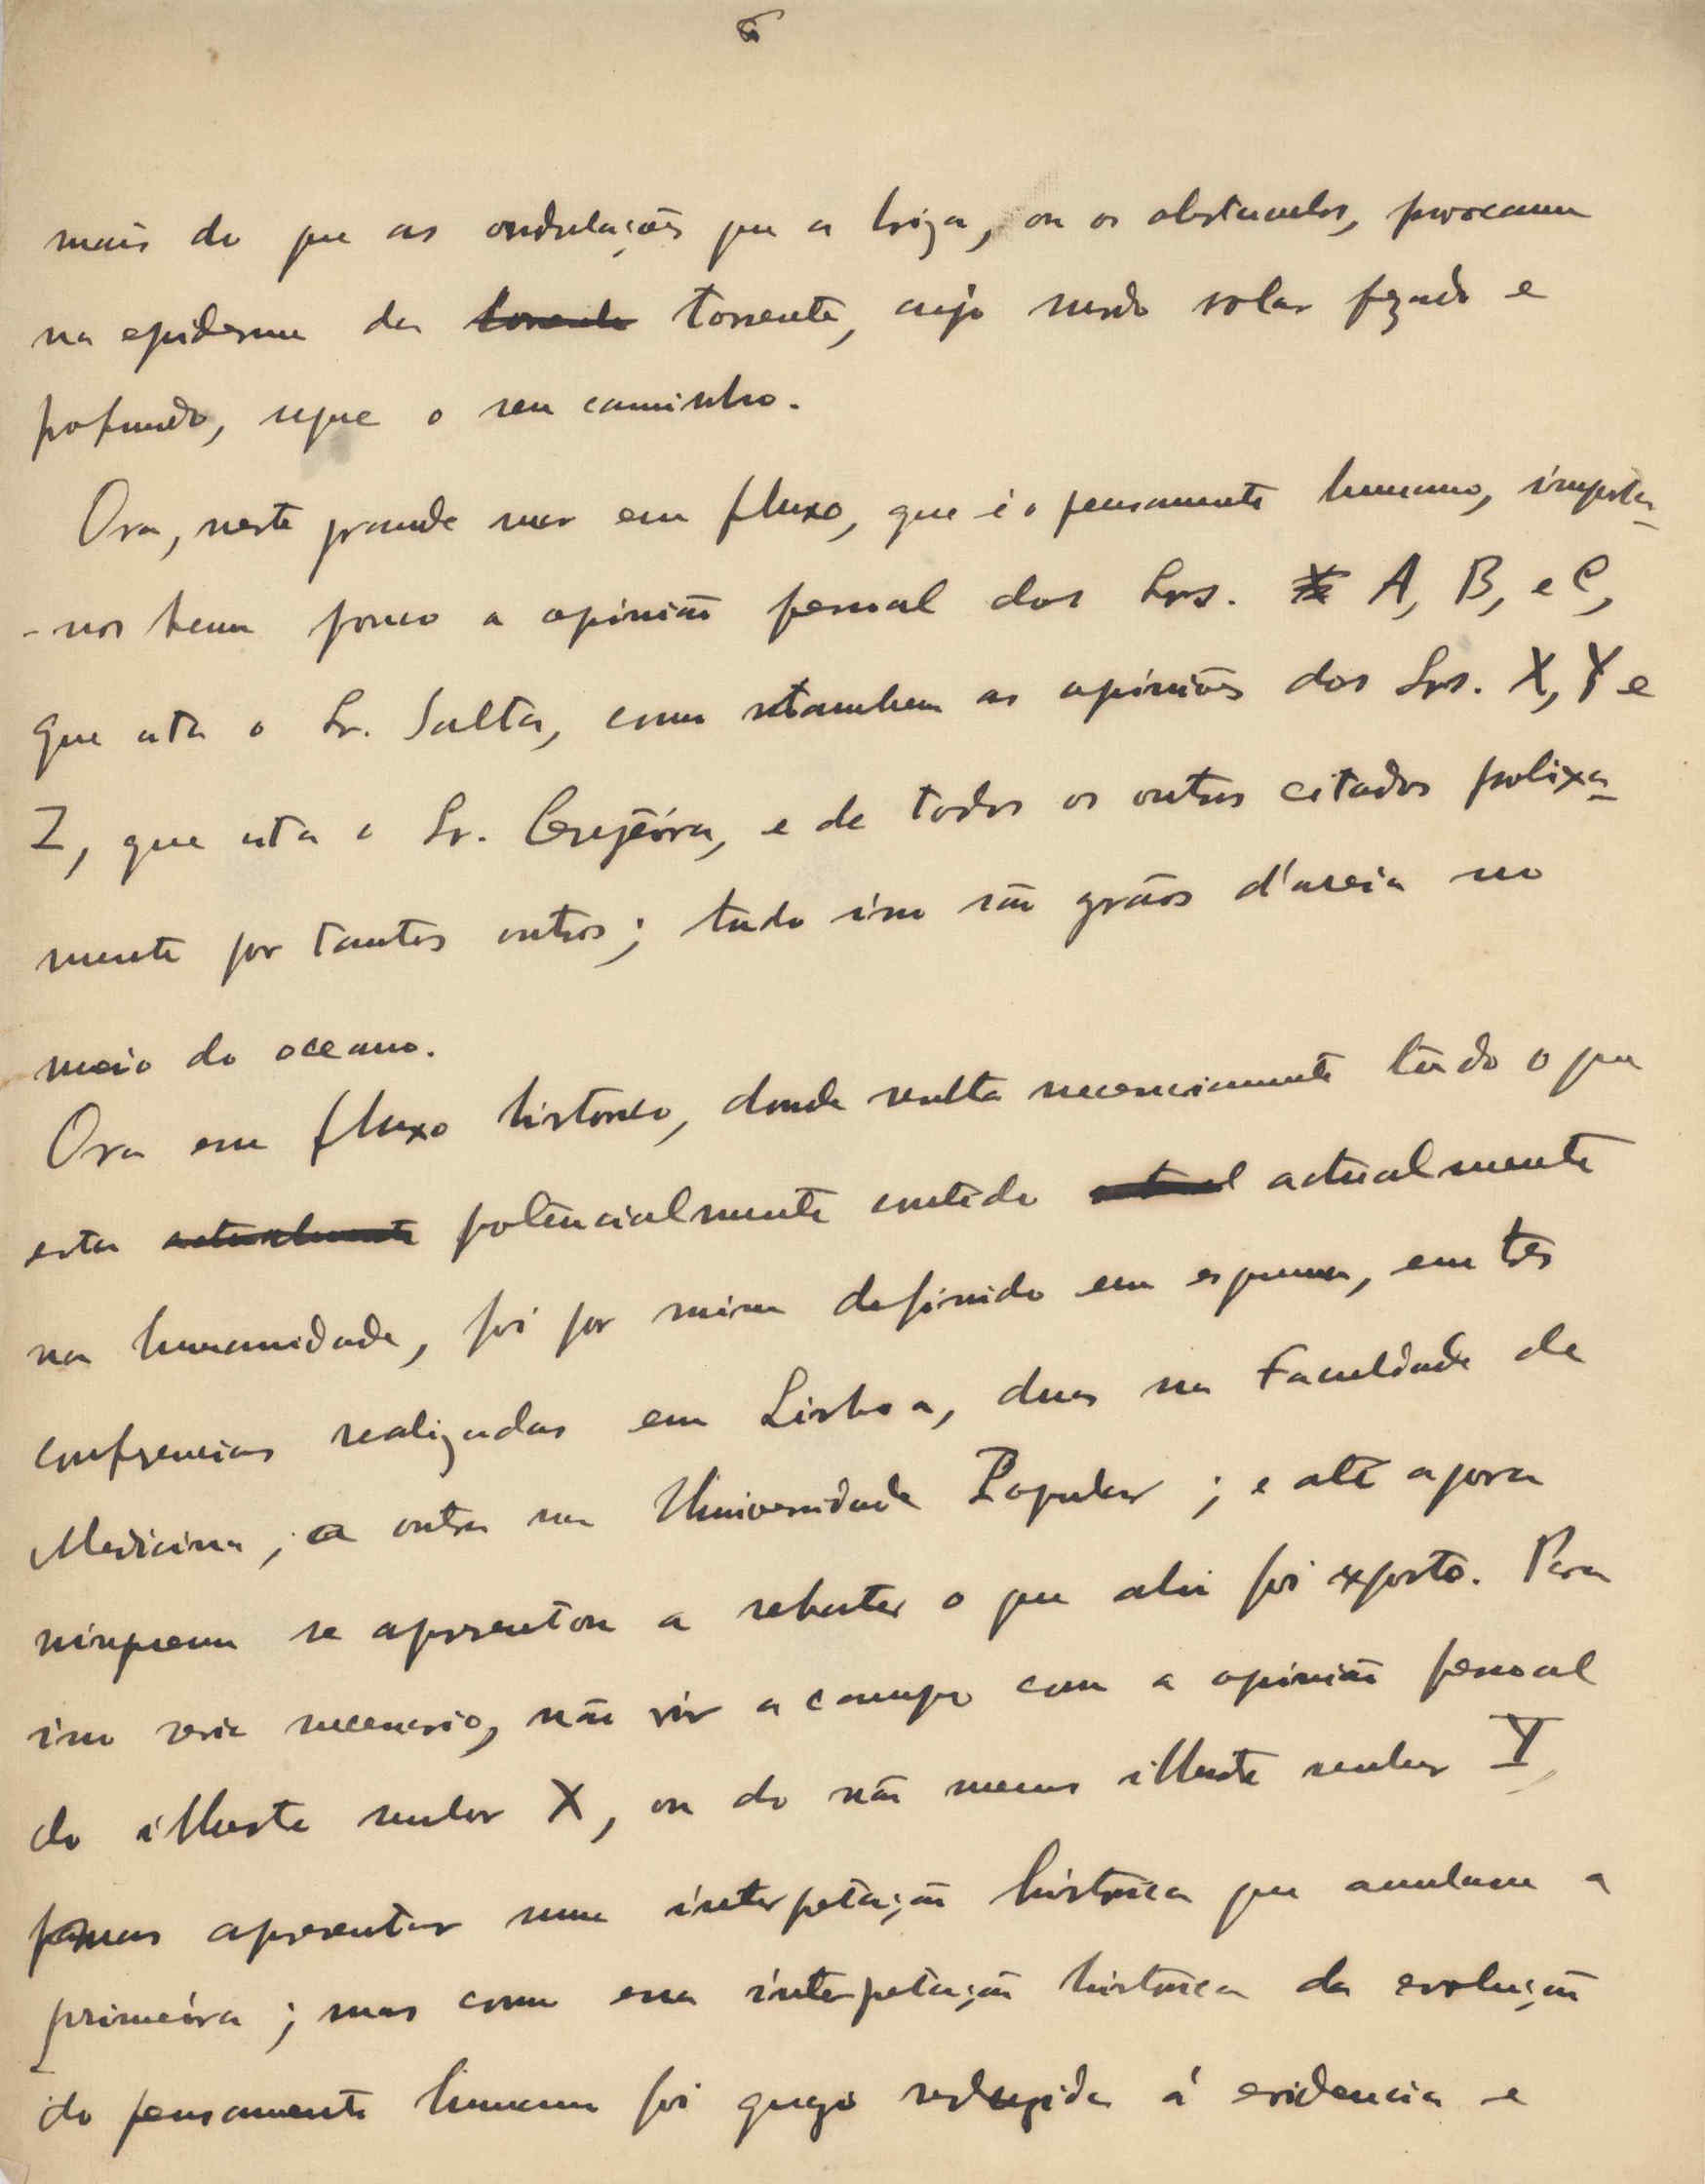 6
mais do que as ondulações que a briza, ou os obstaculos, provocam
na epiderme da torrente torrente, cujo mudo rolar pezado e
profundo, segue o seu caminho.
Ora, neste grande mar em fluxo, que é o pensamento humano, importa-
-nos bem pouco a opinião pessoal dos Srs. X A, B, e C,
que cita o Sr. Salta, como tambem as opiniões dos Srs. X, Y e
Z, que cita o Sr. Cerejeira, e de todos os outros citados prolixa-
mente por tantos outros; tudo isso são grãos d'areia no
meio do oceano.
Ora esse fluxo historico, donde resulta necessariamente tudo o que
esta actualmente potencialmente contido actual actualmente
na humanidade, foi por mim definido em esquema, em tres
conferencias realizadas em Lisboa, duas na Faculdade de
Medicina, a outra na Universidade Popular; e até agora
ninguem se apresentou a rebater o que ahi foi exposto. Para
isso seria necessario, não vir a campo com a opinião pessoal
do illustre senhor X, ou do não menos illustre senhor Y,
mas apresentar uma interpetação historica que anulasse a
primeira; mas como essa interpetação historica da evolução
do pensamento humano foi quazi reduzida á evidencia e